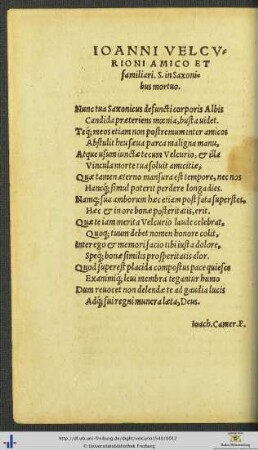 IOANNI VELCV-
RIONI AMICO ET
familiari. S. in Saxoni
bus mortuo.
Nunc tua Saxonicus defuncti corporis Albis
Candida præteriens mœnia, busta uidet.
Teq; meos etiam non postremum inter amicos
Abstulit heu sæua parca maligna manu,
Atque usum iunctæ tecum Velcurio, & illæ
Vincula morte tua soluit amicitiæ,
Quæ tamen æterno mansura est tempore, nec nos
Hancq; simul poterit perdere longa dies.
Namq; sua amborum hæc etiam post fata superstes,
Hæc & in ore bonæ posteritatis, erit.
Quæ te iam merita Velcurio laude celebrat,
Quoq; tuum debet nomen honore colit,
Inter ego & memori facio tibi iusta dolore,
Speq; bonæ similis prosperitatis alor.
Quod superest placida compostus pace quiesce
Exanimiq; leui membra tegantur humo
Dum reuocet non delendæ te ad gaudia lucis
Adq; sui regni munera lata, Deus.
Ioach. Camer. F.
© Universitätsbibliothek Freiburg